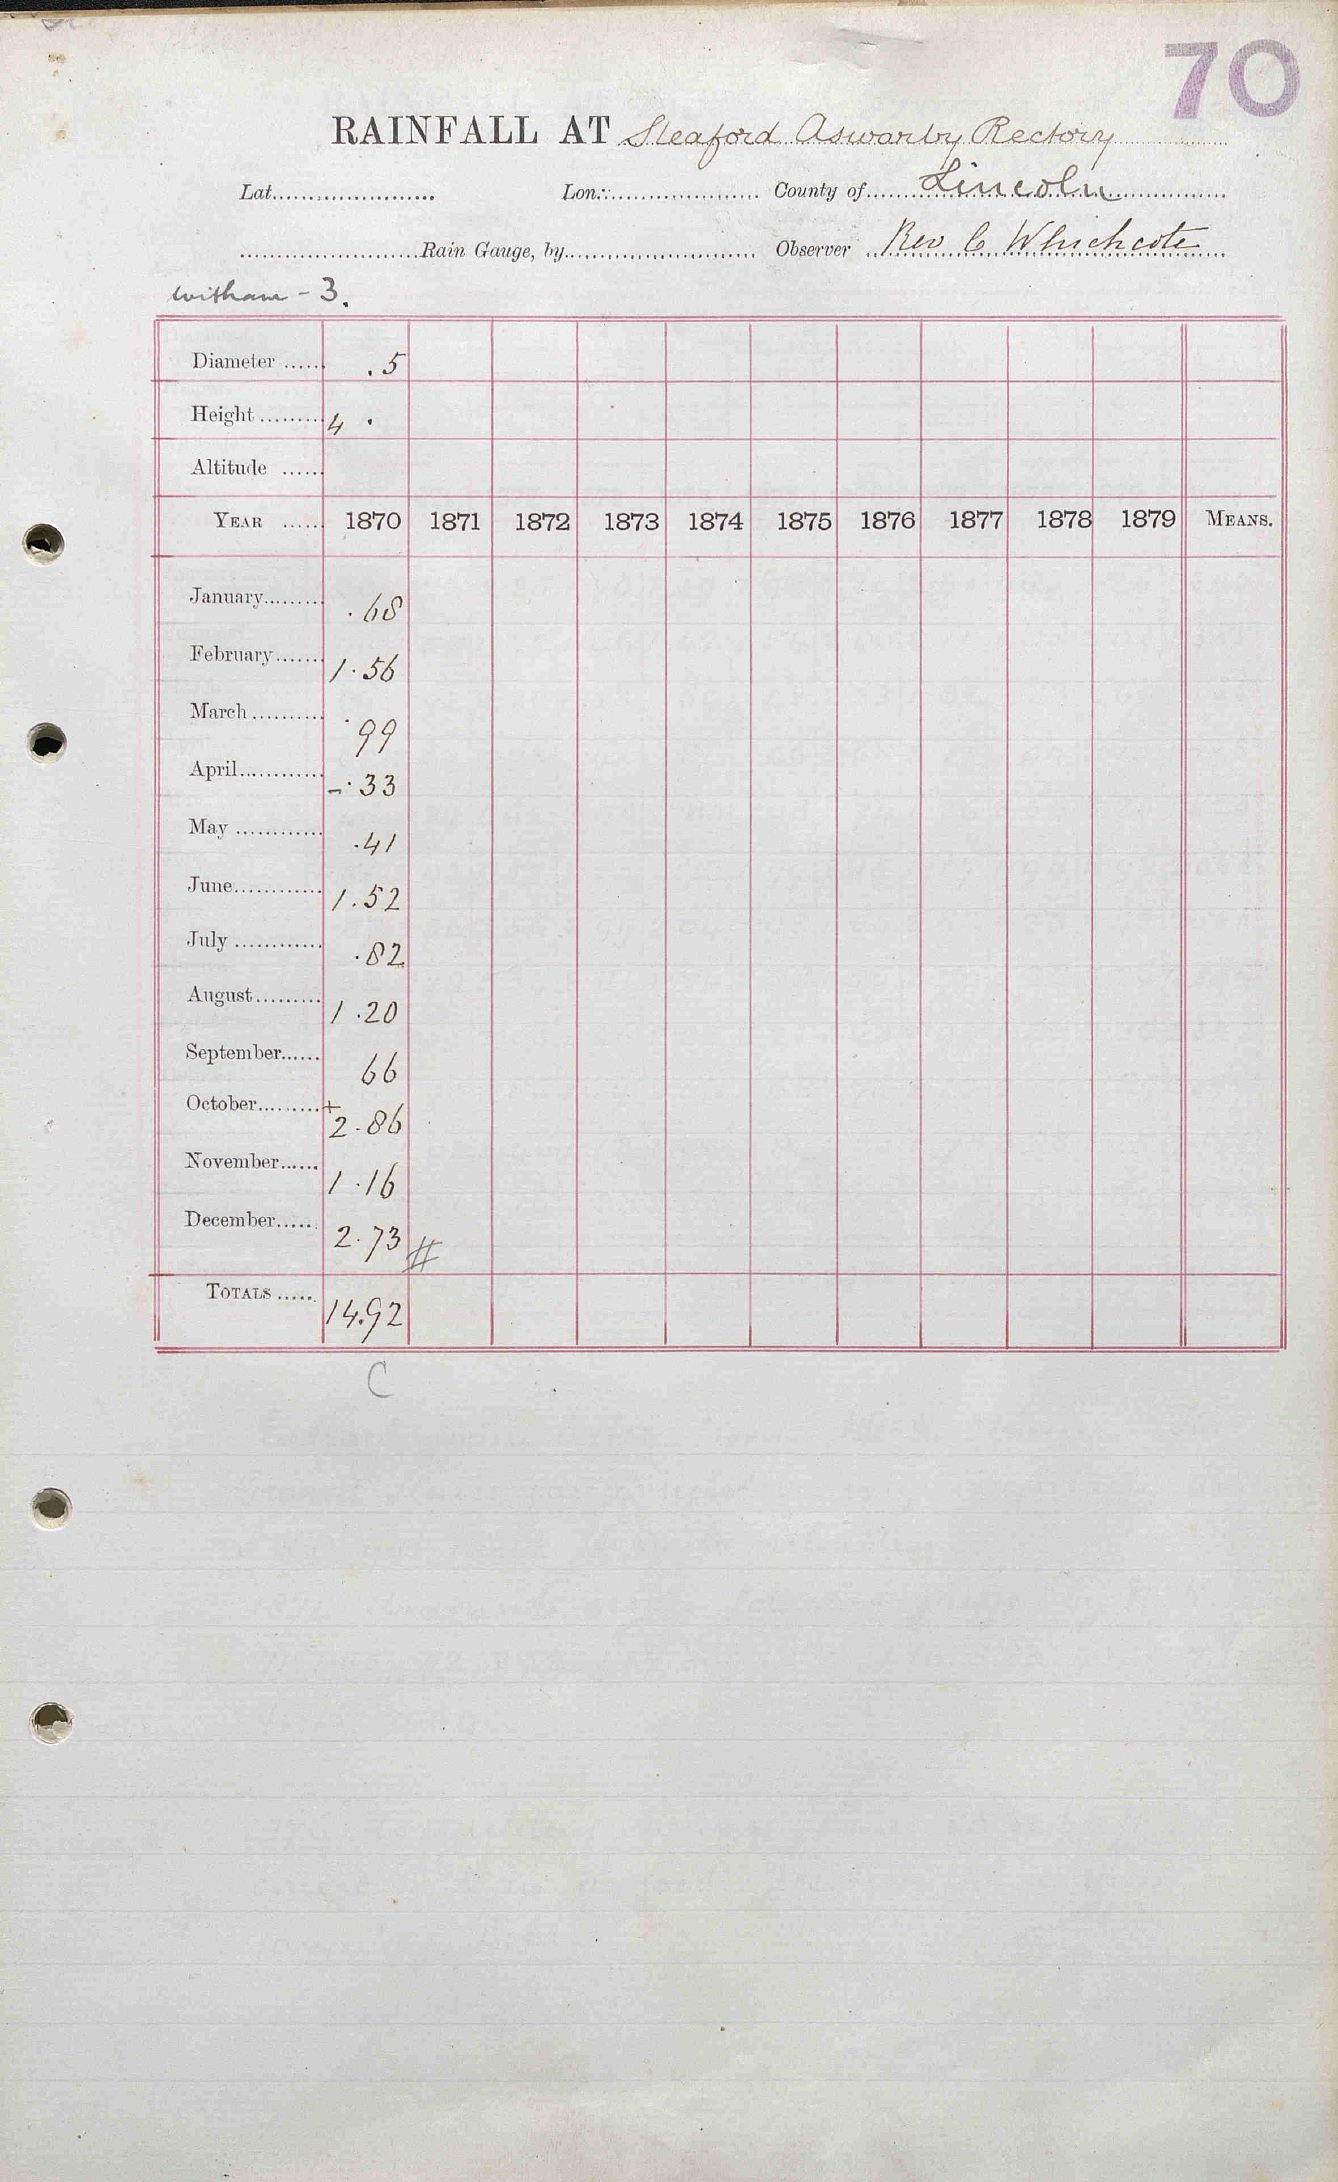 70
RAINFALL AT Sleaford Aswarby Rectory
Lat. Lon. County of Lincoln
Rain Gauge, by Observer Rev C Whichcote
Witham - 3.
Diameter .5
Height 4 .
Altitude
YEAR 1870 1871 1872 1873 1874 1875 1876 1877 1878 1879 MEANS.
January .68
February 1.56
March .99
April -.33
May .41
June 1.52
July .82
August 1.20
September 66
October +2.86
November 1.16
December 2.73 #
TOTALS 14.92
C